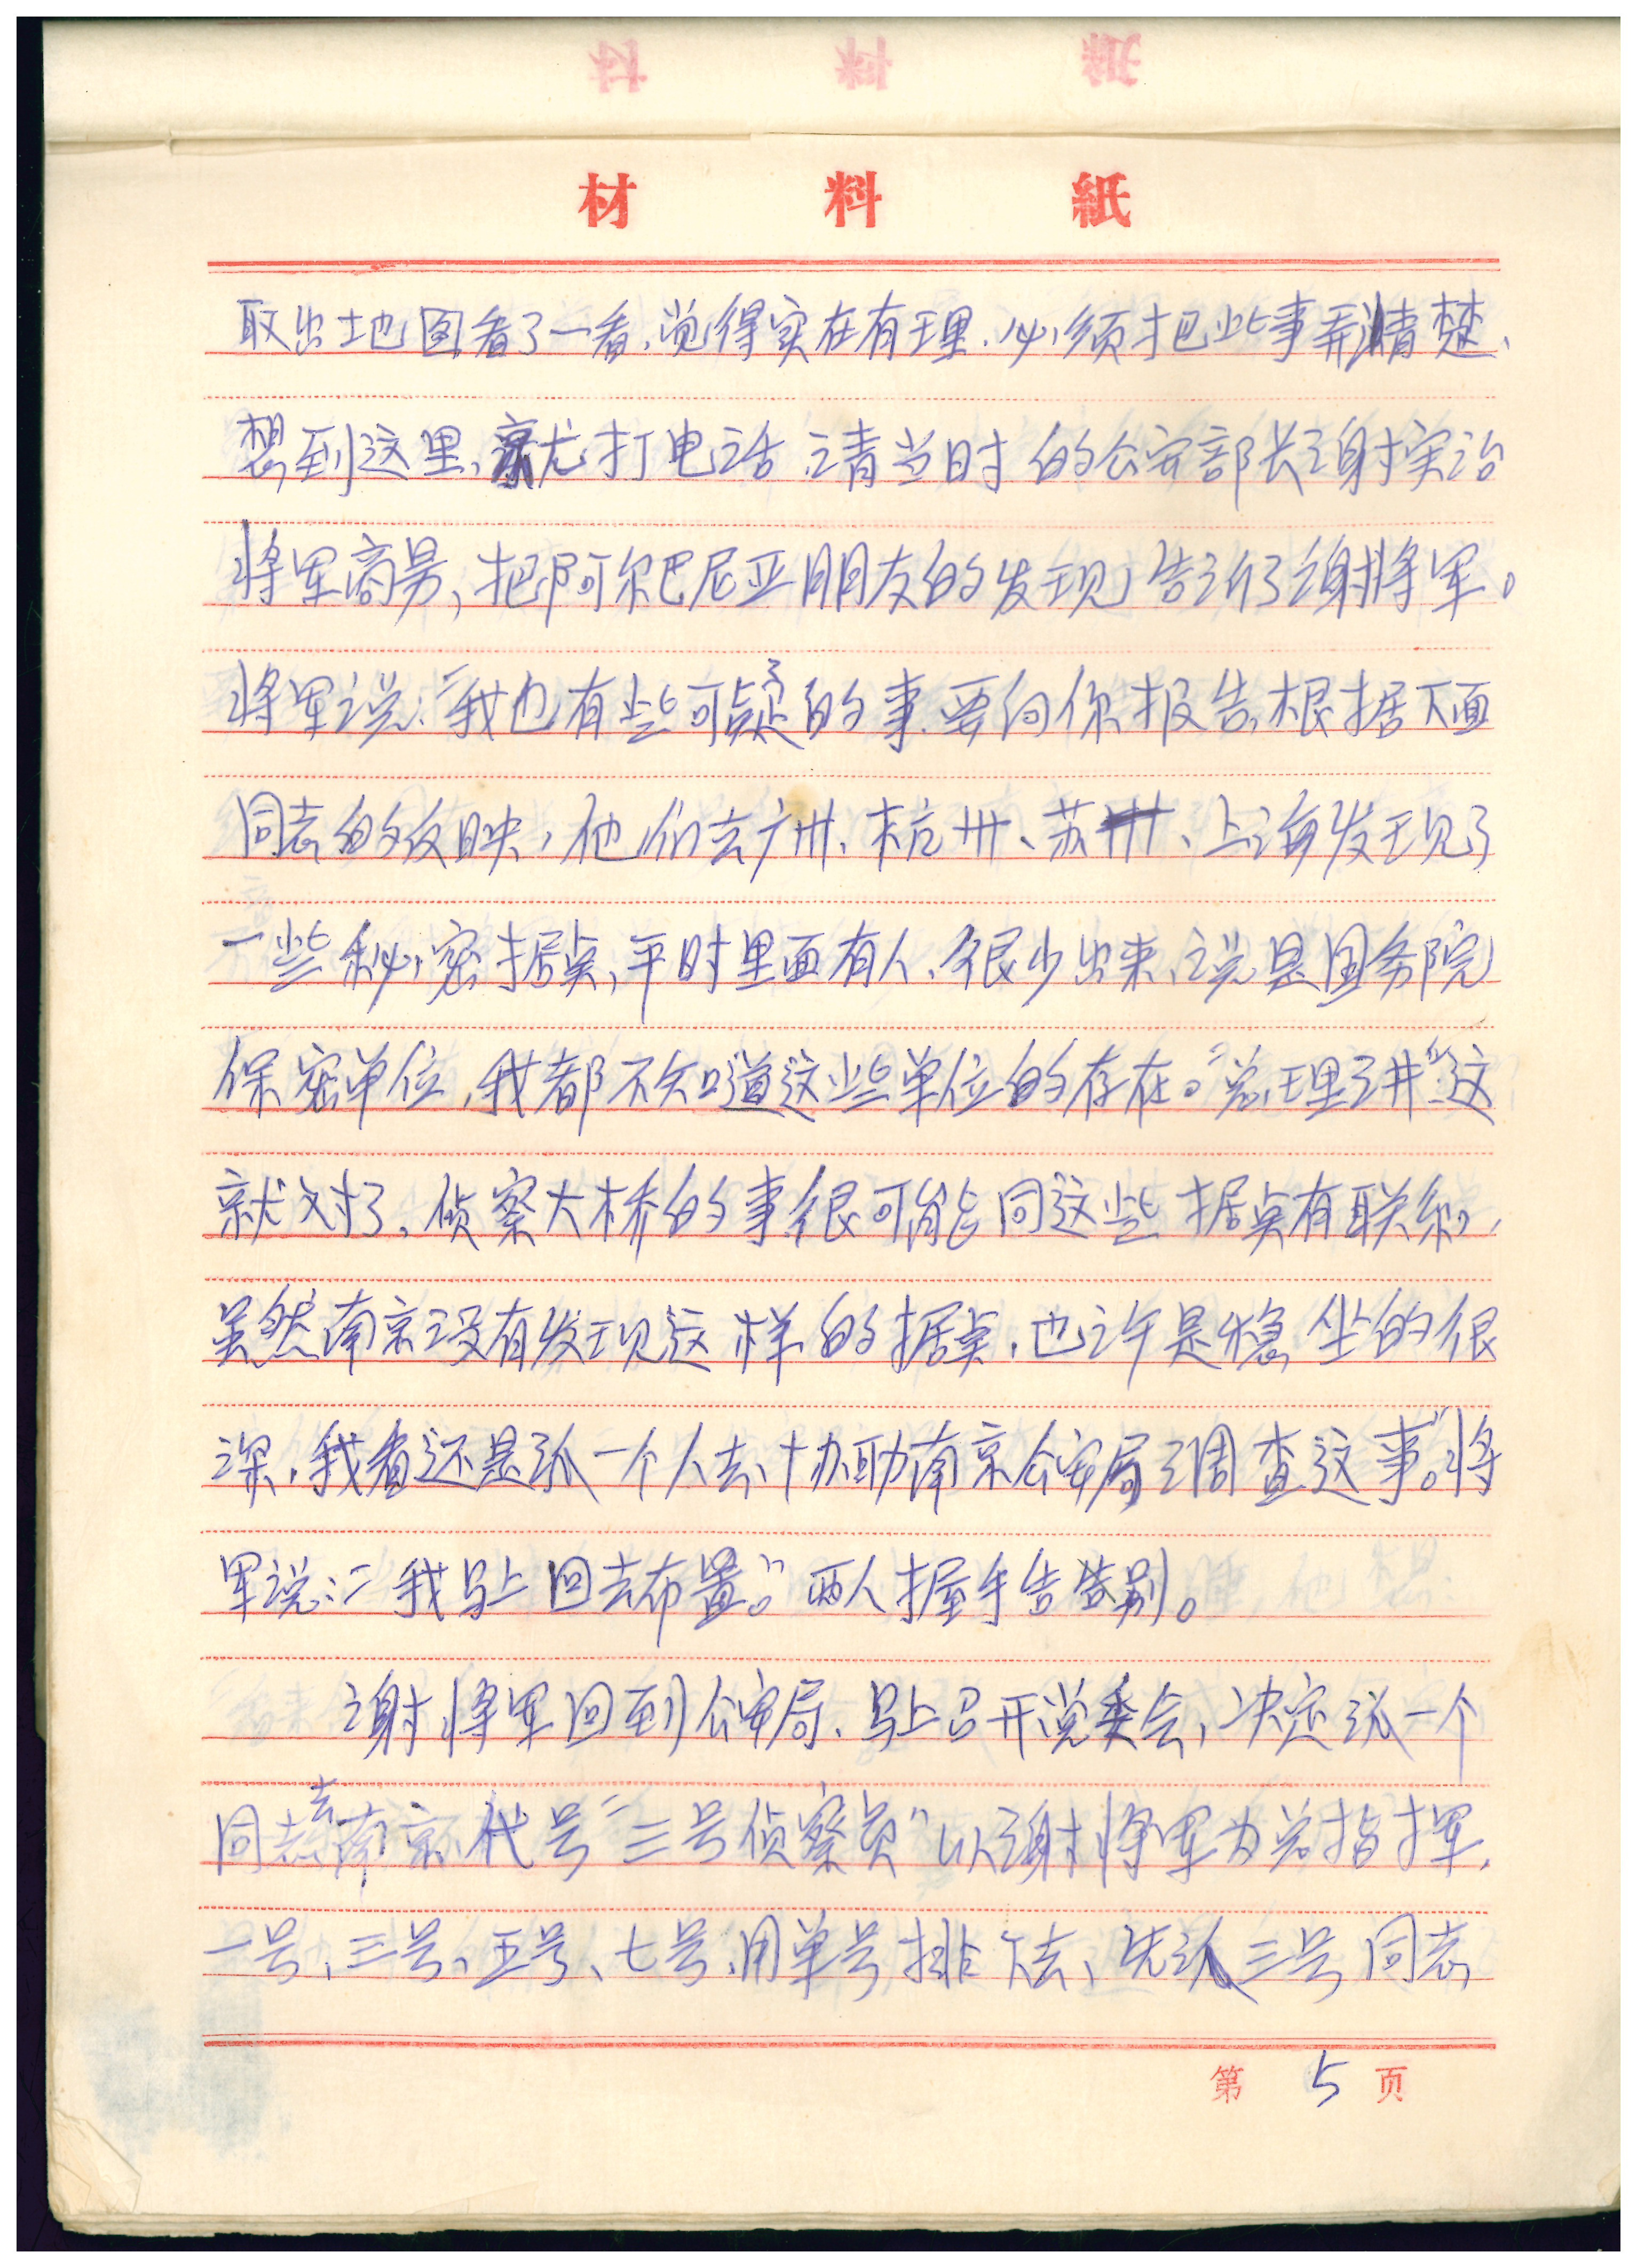 材料紙
取出地图看了一看,觉得实在有理.必须把些事弄清楚、
想到这里、就打电话、请当时的公安部长谢实治
将军商男,把阿尔巴尼亚朋友的发现告诉了谢将军。
将军说:“我也有些可疑的事.要向你报告、根据下面
同志的反映,他们去广州、杭州、苏州、上海发现了
一些秘密据点,平时里面有人、很少出来、说是国务院
保密单位,我都不知道这些单位的存在。”总理讲“这
就对了、侦察大桥的事很可能同这些据点有联系,
虽然南京没有发现这样的据点.也许是稳坐的很
深,我看还是派一个人去、协助南京公安局调查这事。”将
军说:“我马上回去布置。”两人握手告告别。
谢将军回到公安局、马上召开党委会,决定派一个
同志去南京代号“三号侦察员”以谢将军为总指挥.
一号、三号、五号、七号、用单号排下去、先派三号同志
第 5 页